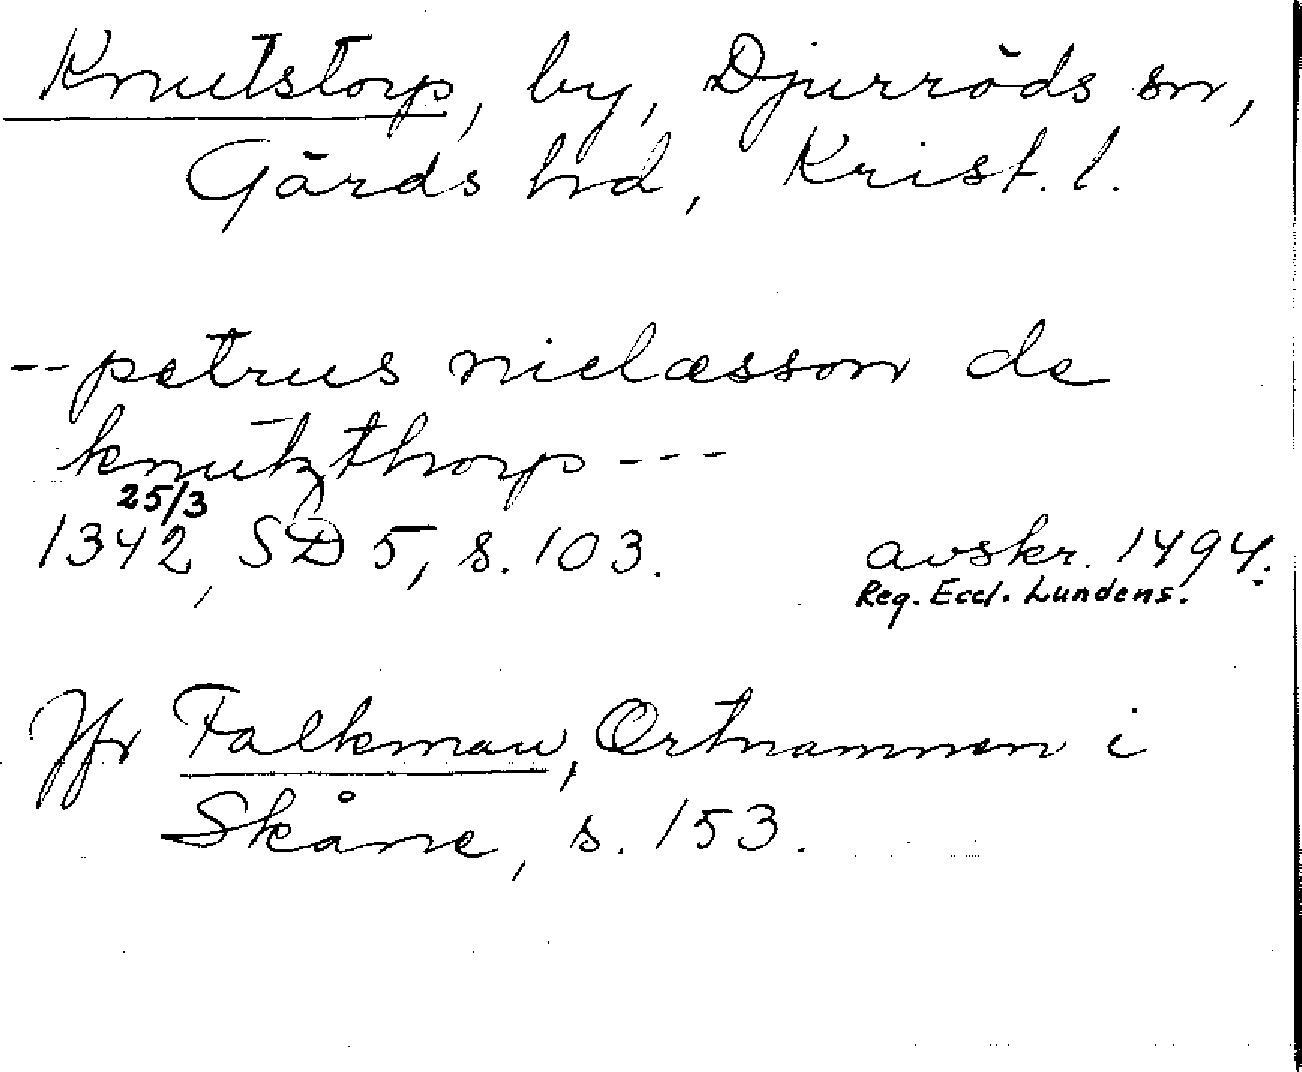 Knutstorp, by, Djurröds sn,
Gärds hd, Krist. l.
--petrus nielæsson de
knutzthorp ---
25/3
1342, SD 5, s. 103. avskr. 1494.
Reg. Eccl. Lundens.
Jfr Falkman, Ortnamnen i
Skåne, s. 153.